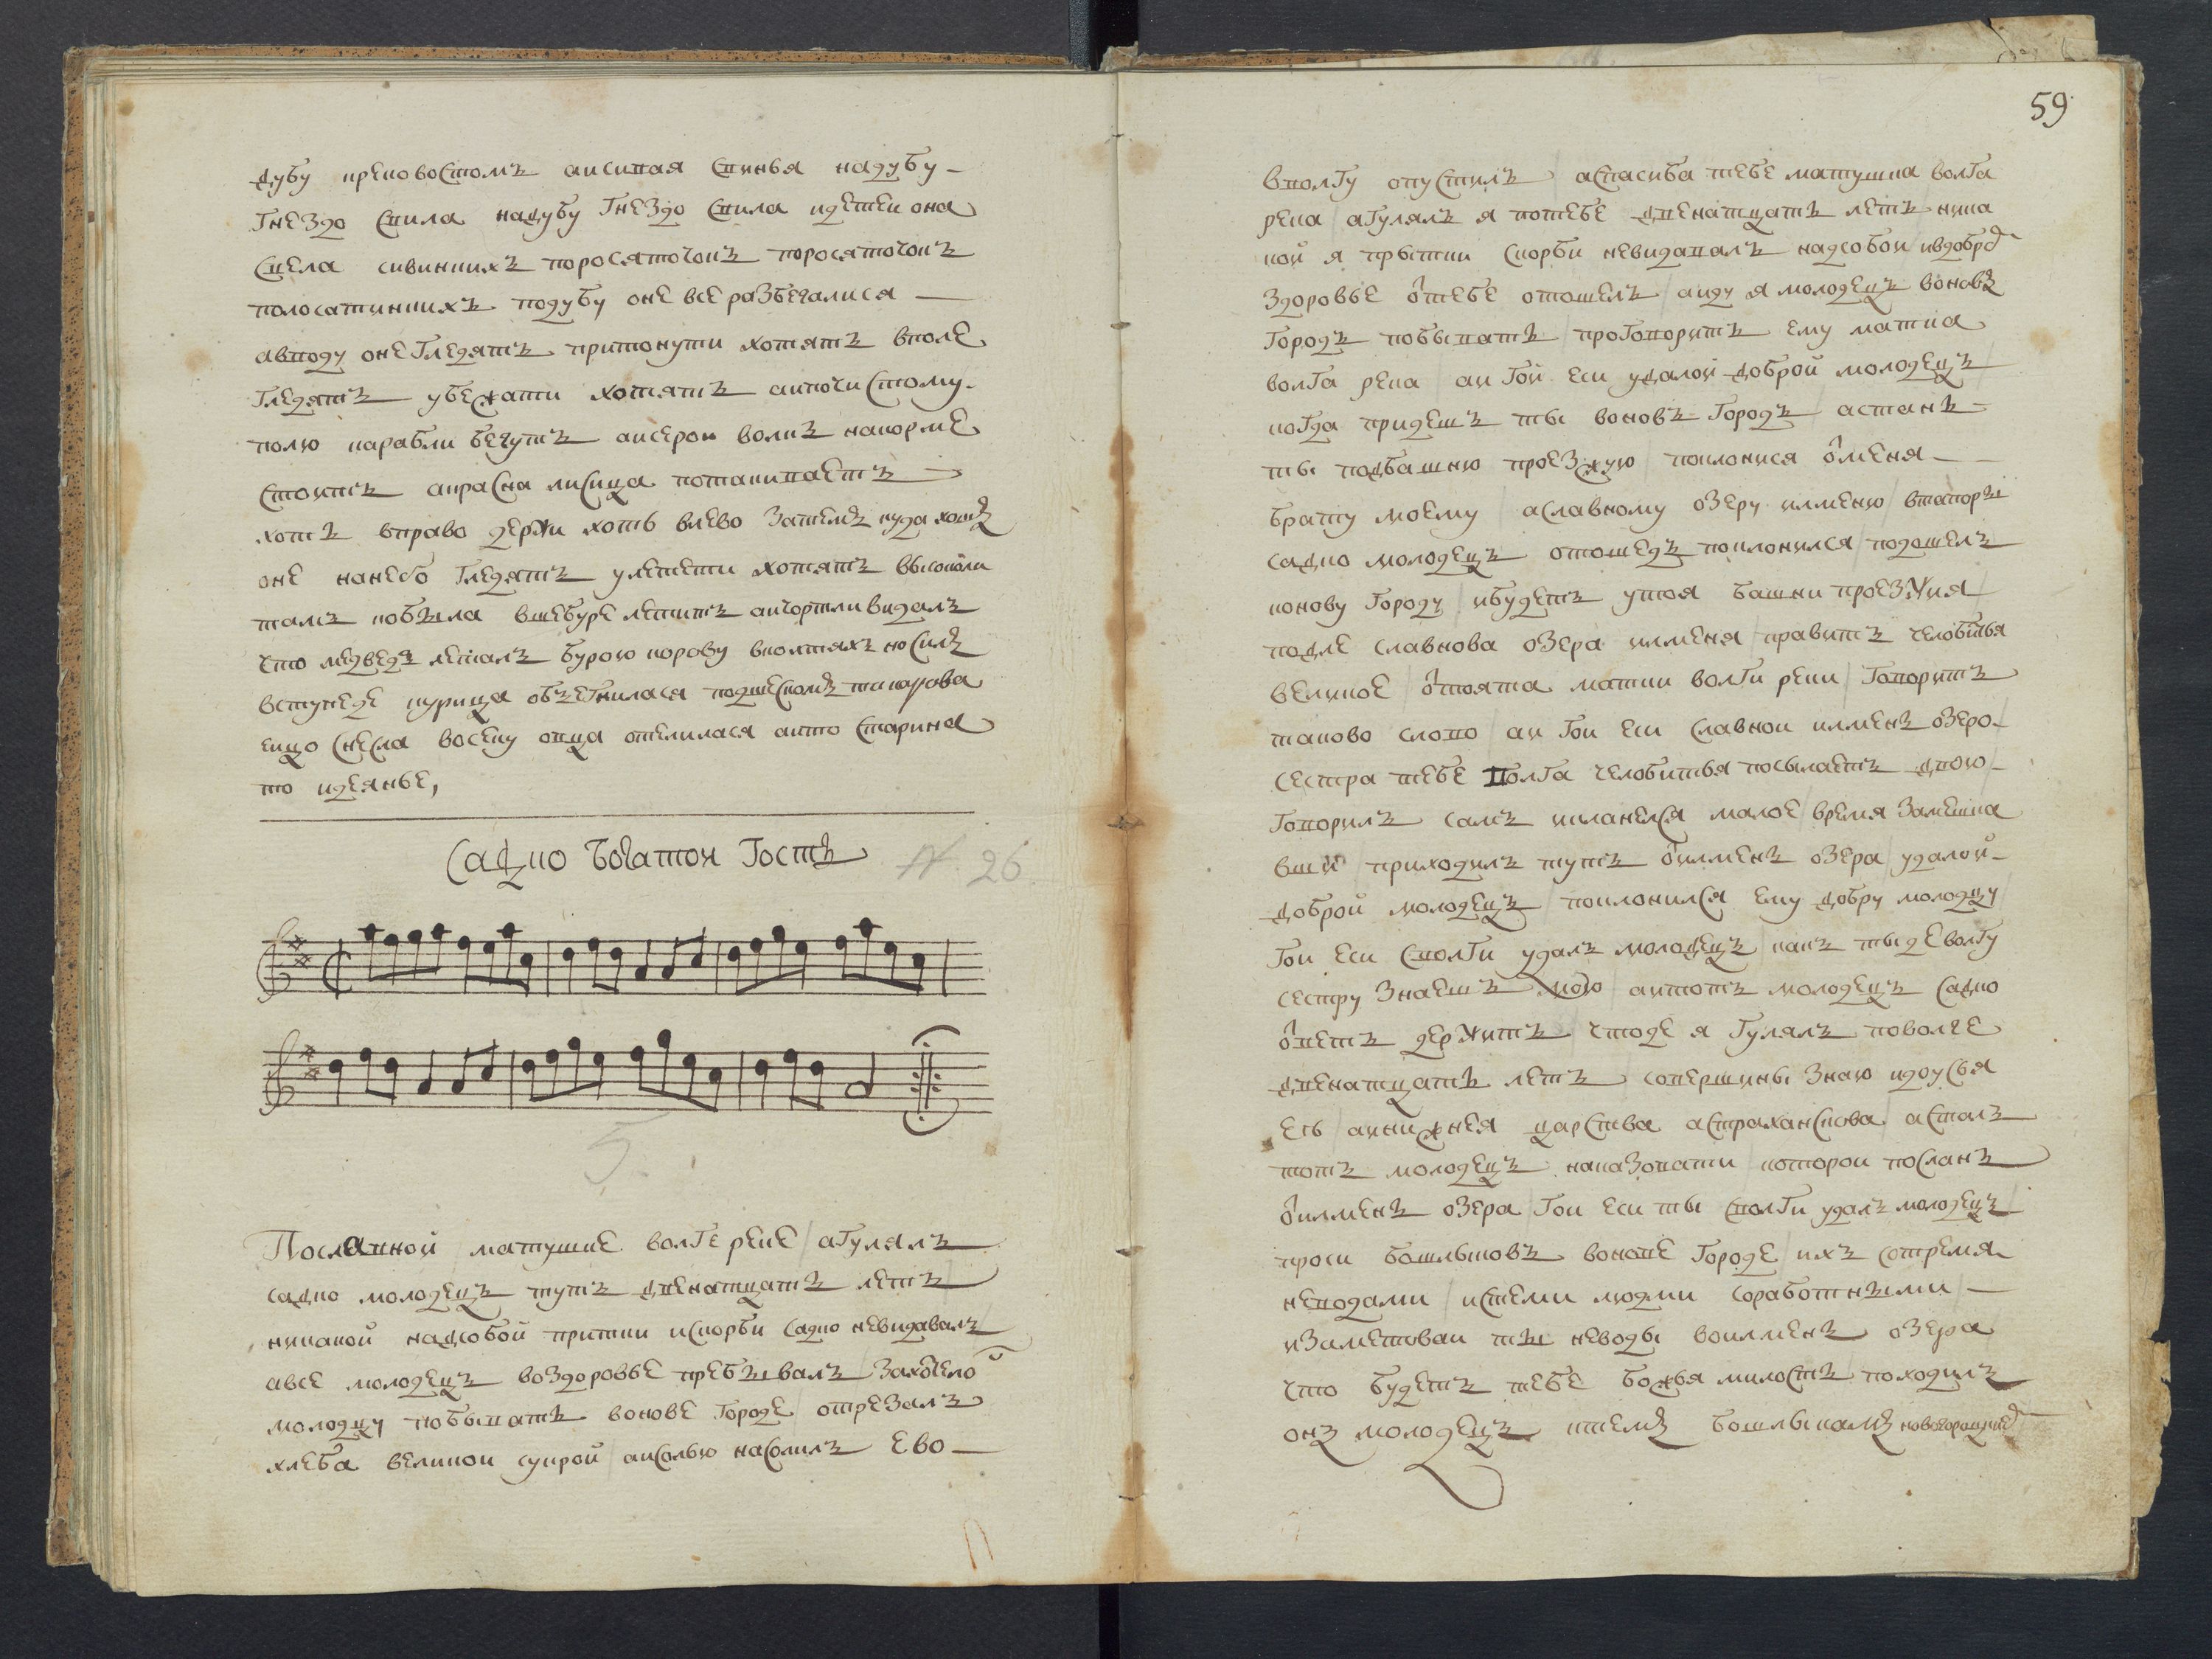 дубу креповостомъ аисивая свинья надубу
гнездо свила надубу гнездо свила идетеи она
свела сивинкихъ поросяточокъ поросяточокъ
полосатинкихъ подубу оне все разбегалися
авводу оне гледятъ притонути хотятъ вполе
гледятъ убежати хотятъ аипочистому
полю карабли бегутъ аисерои волкъ накорме
стоитъ акрасна лисица потакиваетъ
хоть вправо держи хоть влево затемъ куда хошъ
оне нанебо гледятъ улетети хотятъ высоколи
тамъ кобыла вшебуре летитъ ачортли видалъ
что медведь леталъ бурою корову вкогтяхъ носилъ
вступеде курица объегнилася подшесткомъ такарова
еицо снесла восеку овца отелилася ато старина
то идеянье,
Садко богатои гость
N. 26
5
Пославной матушке волге реке / агулялъ
садко молодецъ тутъ двенатцать летъ
никакой надсобой притки искорби садко невидавалъ
авсе молодецъ воздоровье пребывалъ захотело
молодцу побывать вонове городе / отрезалъ
хлеба великои сукрой / аисолью насолилъ ево
59
вволгу опустилъ / аспасиба тебе матушка волга
река / агулялъ я потебе двенатцать летъ ника
кой я прытки скорби невидавалъ надсобои ивдобро
здоровье отебе отошелъ / аиду я молодецъ воновъ
городъ побывать / проговоритъ ему матка
волга река / аи гой еси удалой доброй молодецъ
когда придешъ ты воновъ городъ / астань
ты подбашню проезжую / поклонися оменя
брату моему / аславному озеру илменю / втапоры
садко молодецъ отошедъ поклонился / подошелъ
конову городу / ибудетъ утоя башни проезжия
подле славнова озера илменя / правитъ челобитья
великое / отоята матки волги реки / говоритъ
таково слово / аи гои еси славнои илмень озеро
сестра тебе Волга челобитья посылаетъ двою
говорилъ самъ икланелся малое / время замешка
вши приходилъ тутъ оилмень озера / удалой
доброй молодецъ / поклонился ему добру молодцу
гои еси сволги удалъ молодецъ / какъ тыде волгу
сестру знаешъ мою / аитотъ молодецъ садко
ответъ держитъ / чтоде я гулялъ поволге
двенатцать летъ совершины знаю идоусья
еѣ аинижнея царства астраханскова асталъ
тотъ молодецъ наказовати / которои посланъ
оилмень озера / гои еси ты сволги удалъ молодецъ
проси бошлыковъ вонове городе / ихъ стремя
неводами / истеми людми соработными
изаметоваи ты неводы воилмень озера
что будетъ тебе божья милость / походилъ
онъ молодецъ ктемъ бошлыкамъ новогородскиѣ